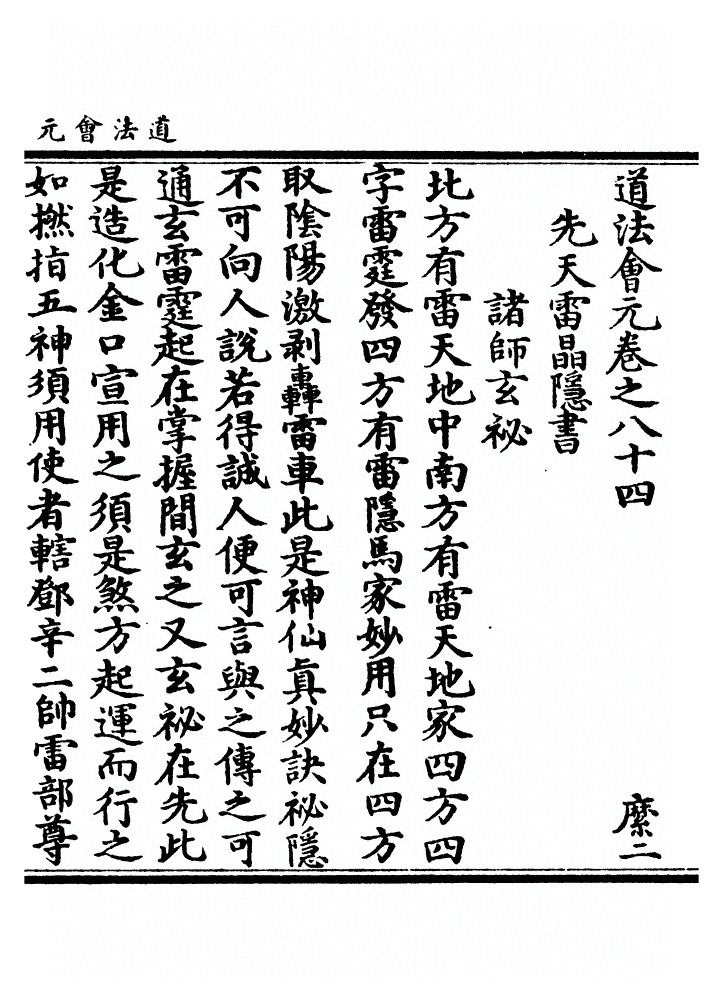 道法會元
道法會元卷之八十四　縻二
先天雷晶隱書
諸師玄祕
北方有雷天地中南方有雷天地家四方四
字雷霆發四方有雷隱馬家妙用只在四方
取陰陽激剥轟雷車此是神仙眞妙訣祕隱
不可向人說若得誠人便可言與之傳之可
通玄雷霆起在掌握間玄之又玄祕在先此
是造化金口宣用之須是煞方起運而行之
如撚指五神須用使者轄鄧辛二帥雷部尊